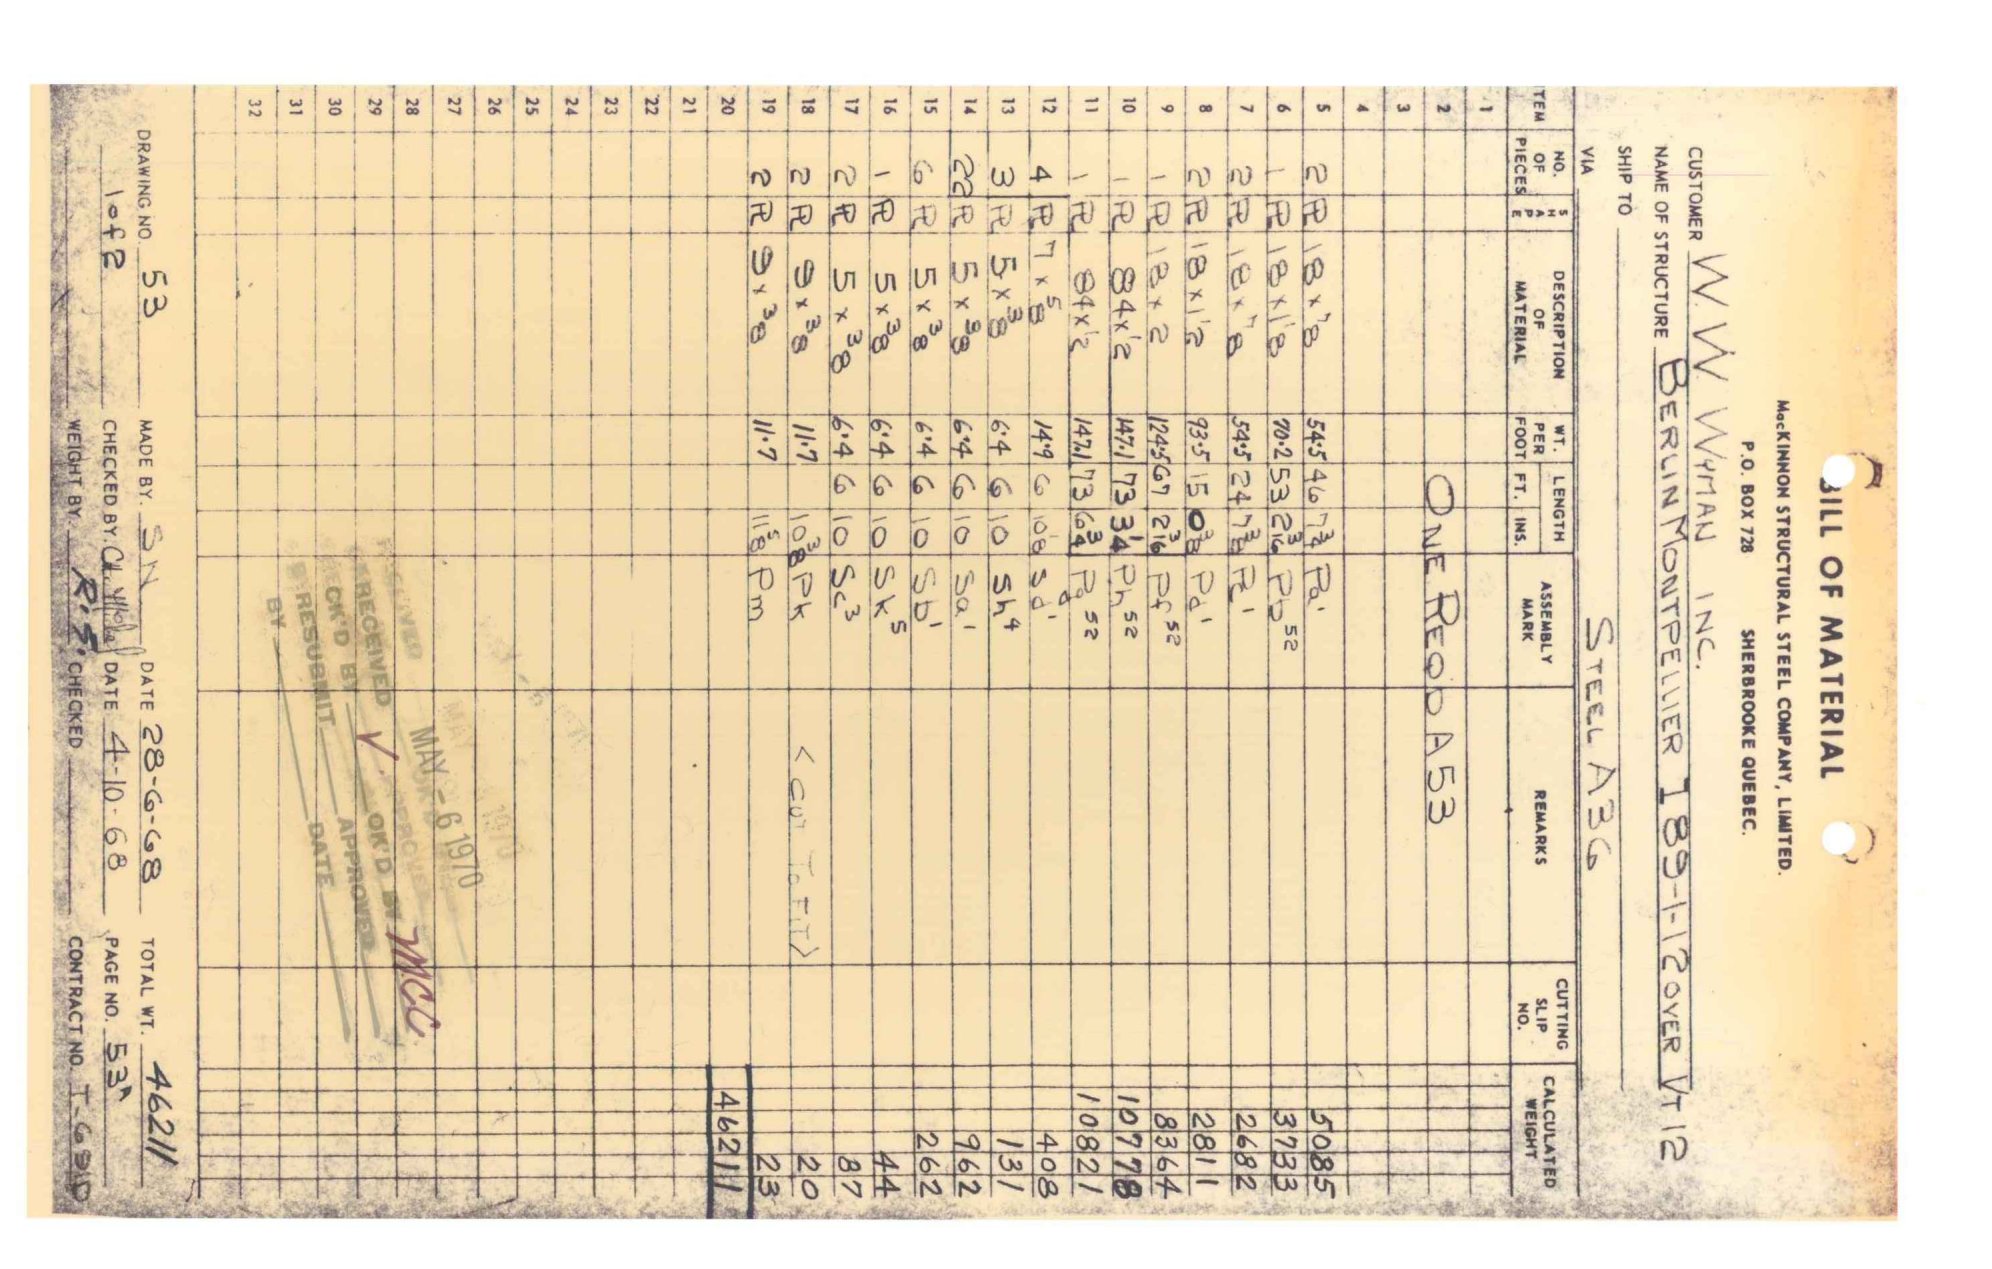 BILL OF MATERIAL
MacKINNON STRUCTURAL STEEL COMPANY, LIMITED.
P.O. BOX 728 SHERBROOKE QUEBEC.
CUSTOMER W. W. WYMAN INC.
NAME OF STRUCTURE BERLIN MONTPELLIER I 89-1-12 OVER VT 12
SHIP TO
VIA STEEL A36
ITEM NO. OF PIECES SHAPE DESCRIPTION OF MATERIAL WT. PER FOOT LENGTH FT. INS. ASSEMBLY MARK REMARKS CUTTING SLIP NO. CALCULATED WEIGHT
1
2 ONE REQD A53
3
4
5 2 PL 18 x 7/8 54.5 46 7 3/4 Pa' 5085
6 1 PL 18 x 1 1/8 70.2 53 2 3/16 Pb 52 3733
7 2 PL 18 x 7/8 54.5 24 7 3/8 Pc' 2682
8 2 PL 18 x 1 1/2 93.5 15 0 3/8 Pd' 2811
9 1 PL 18 x 2 124.5 67 2 3/16 Pf 52 8364
10 1 PL 84 x 1/2 147.1 73 3 1/4 Ph 52 10778
11 1 PL 84 x 1/2 147.1 73 6 3/4 Pg 52 10821
12 4 PL 7 x 5/8 14.9 6 10 1/8 Sd' 408
13 3 PL 5 x 3/8 6.4 6 10 Sh 4 131
14 22 PL 5 x 3/8 6.4 6 10 Sa' 962
15 6 PL 5 x 3/8 6.4 6 10 Sb' 262
16 1 PL 5 x 3/8 6.4 6 10 Sk 5 44
17 2 PL 5 x 3/8 6.4 6 10 Sc 3 87
18 2 PL 9 x 3/8 11.7 10 3/8 Pk < CUT TO FIT > 20
19 2 PL 9 x 3/8 11.7 11 5/8 Pm 23
20 46211
21
22
23
24
25
26
27
28
29
30
31
32
MAY - 6 1970
RECEIVED APPROVED
RECEIVED OK'D BY MCC
CK'D BY APPROVED
RESUBMIT DATE
BY
DRAWING NO. 53 MADE BY. SN DATE 28-6-68 TOTAL WT. 46211
1 of 2 CHECKED BY. DATE 4-10-68 PAGE NO. 53A
WEIGHT BY. R.S. CHECKED CONTRACT NO.